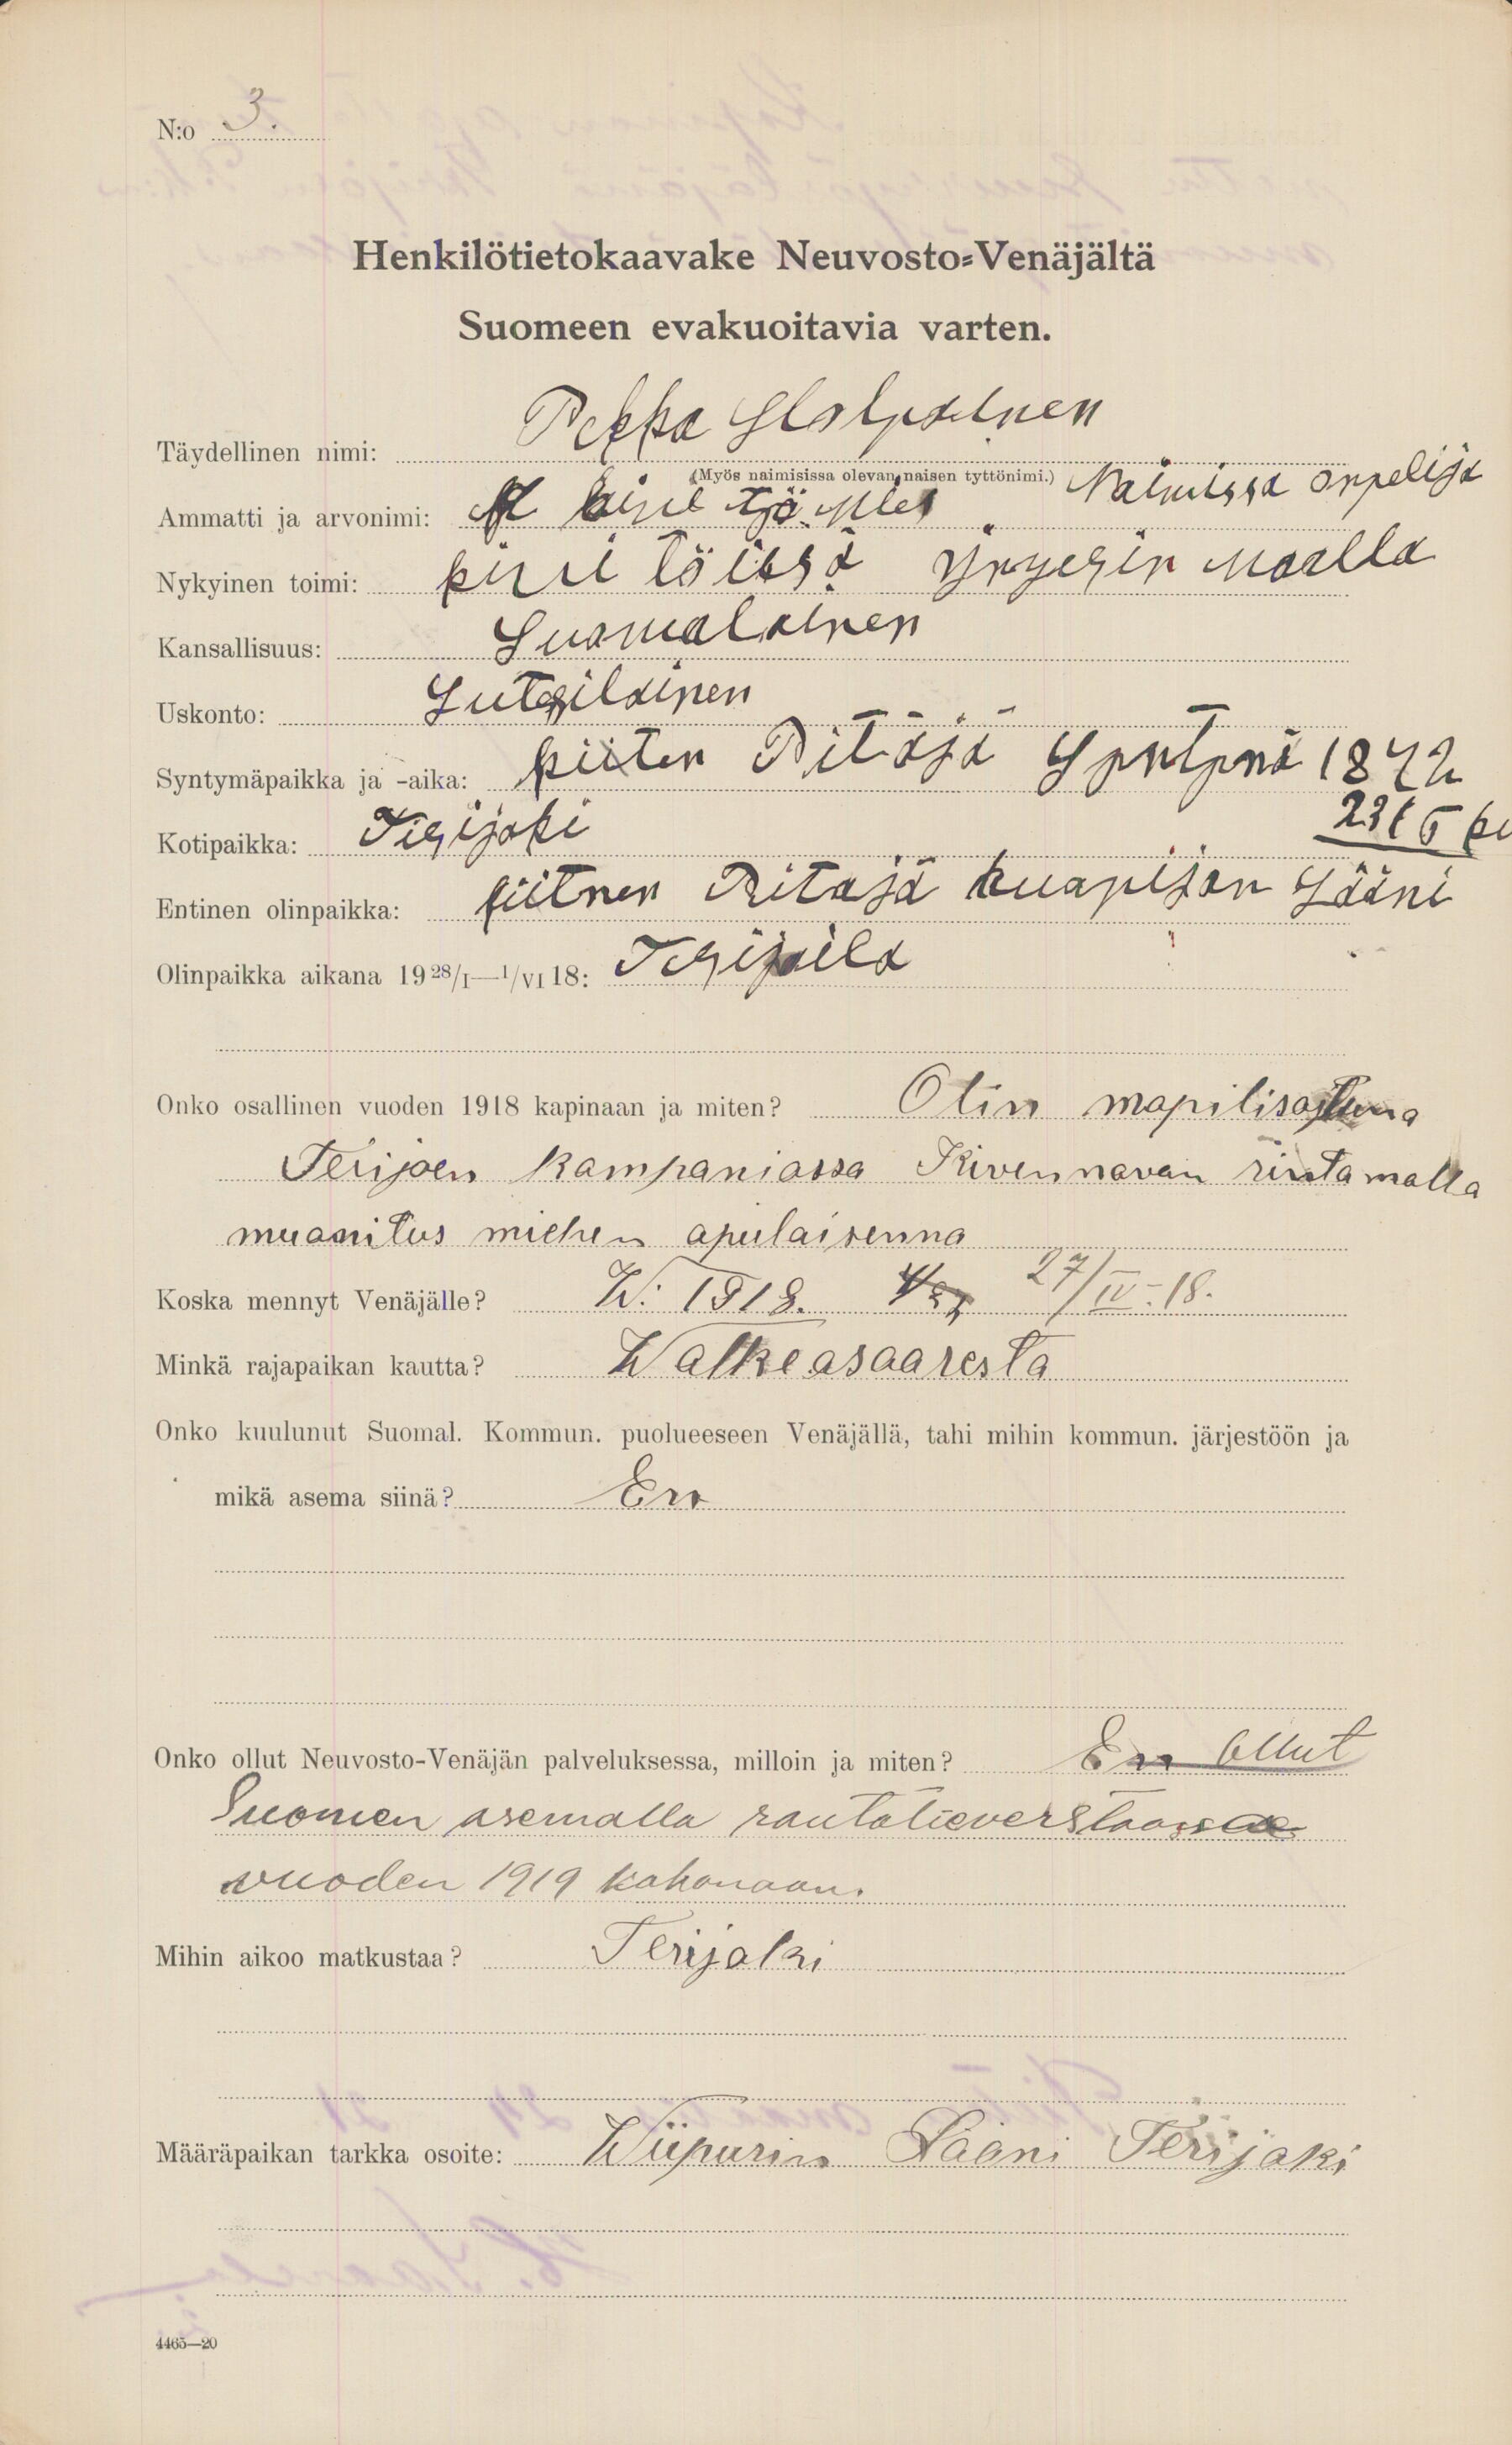 N:o 3.
Henkilötietokaavake Neuvosto-Venäjältä
Suomeen evakuoitavia varten.
Täydellinen nimi: Pekka
(Myös naimisissa olevan naisen tyttönimi.)
Ammatti ja arvonimi: työ mies Naimissa oppelija
Nykyinen toimi: kiri töissä yngerin maalla
Kansallisuus: Suomalainen
Uskonto: Luterilainen
Syntymäpaikka ja -aika: kiiten Pitäjä Syntynä 1872
Kotipaikka: Terijoki
Entinen olinpaikka: kiitnen Pitäjä kuopijon Lääni
Olinpaikka aikana 19 28/I—1/VI 18:
Onko osallinen vuoden 1918 kapinaan ja miten? Olin
Terijoen kampaniassa Kivennavan rintamalla
muonitus miehen apulaisenna
Koska mennyt Venäjälle? W. 1918. 27/IV-18.
Minkä rajapaikan kautta? Walkeasaaresta
Onko kuulunut Suomal. Kommun. puolueeseen Venäjällä, tahi mihin kommun. järjestöön ja
mikä asema siinä? En
Onko ollut Neuvosto-Venäjän palveluksessa, milloin ja miten? En ollut
Suomen asemalla rautatieverstaassa
vuoden 1919 kokonaan.
Mihin aikoo matkustaa? Terijoki
Määräpaikan tarkka osoite: Wiipurin Lääni Terijoki
4465—20